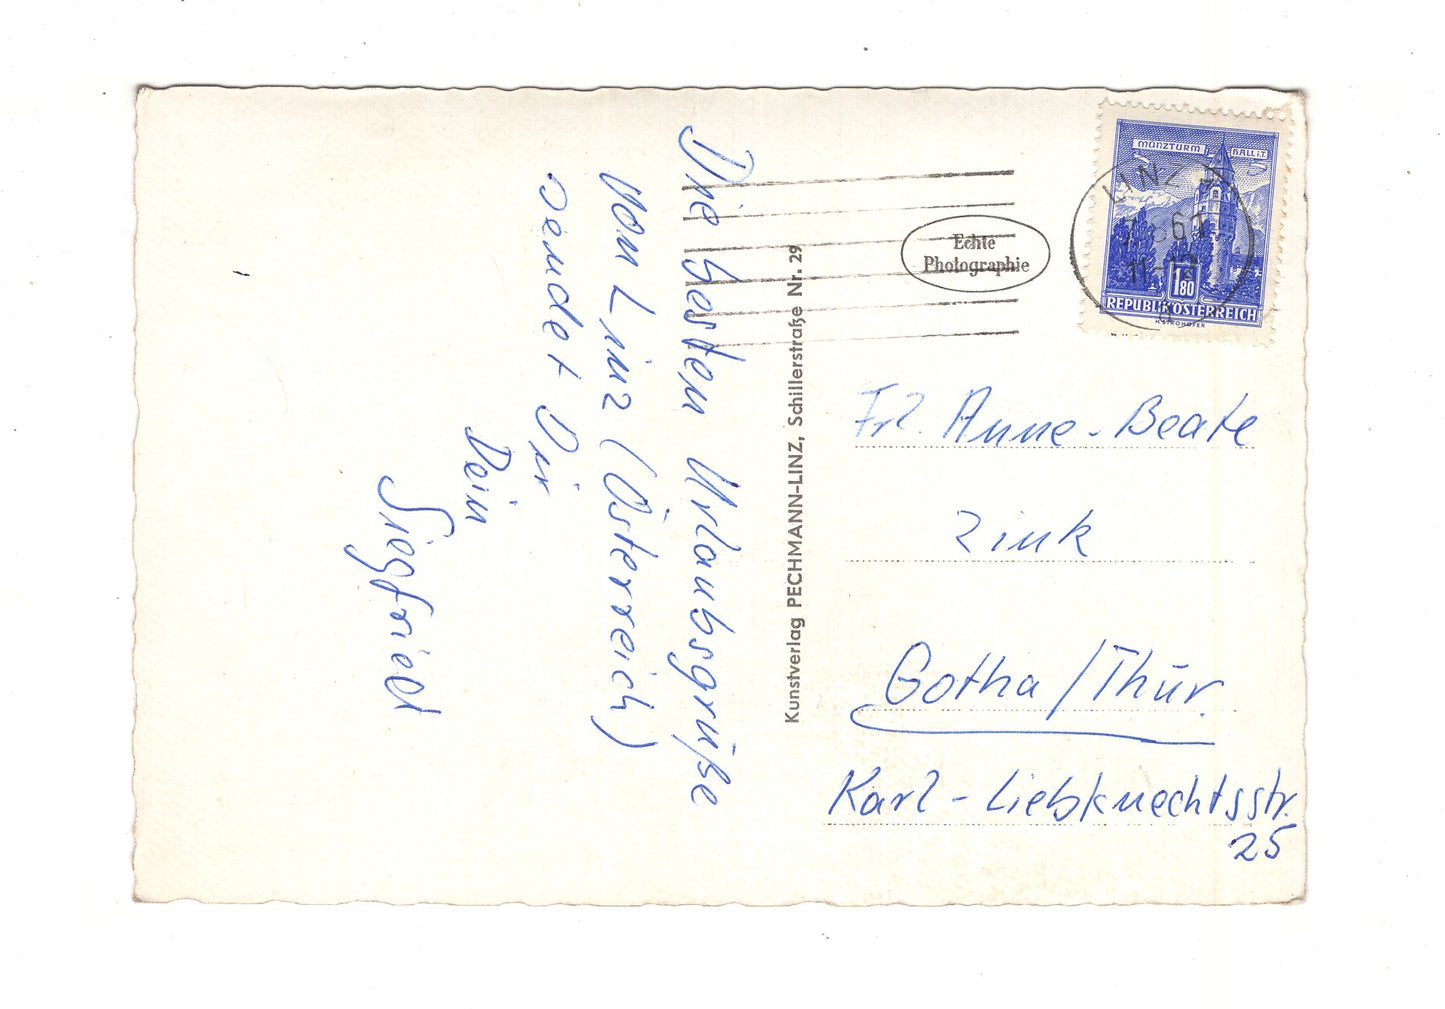 Die besten Urlaubsgrüße
von Linz (Österreich)
sendet Dir
Dein
Siegfried
Kunstverlag PECHMANN-LINZ, Schillerstraße Nr. 29
Echte
Photographie
MÜNZTURM HALL i.T.
LINZ
67
11-12
a
1.80
REPUBLIK ÖSTERREICH
Frl. Anne-Beate
Zink
Gotha/Thür.
Karl-Liebknechtsstr.
25